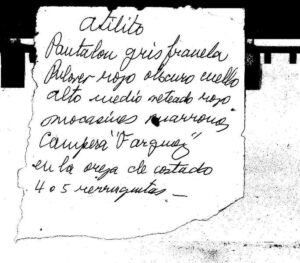 atilito
Pantalon gris franela
Pulover rojo obscuro cuello
alto medio veteado rojo
mocasines marrones
Campera "Varquez"
en la oreja de costado
4 o 5 verruguitas —